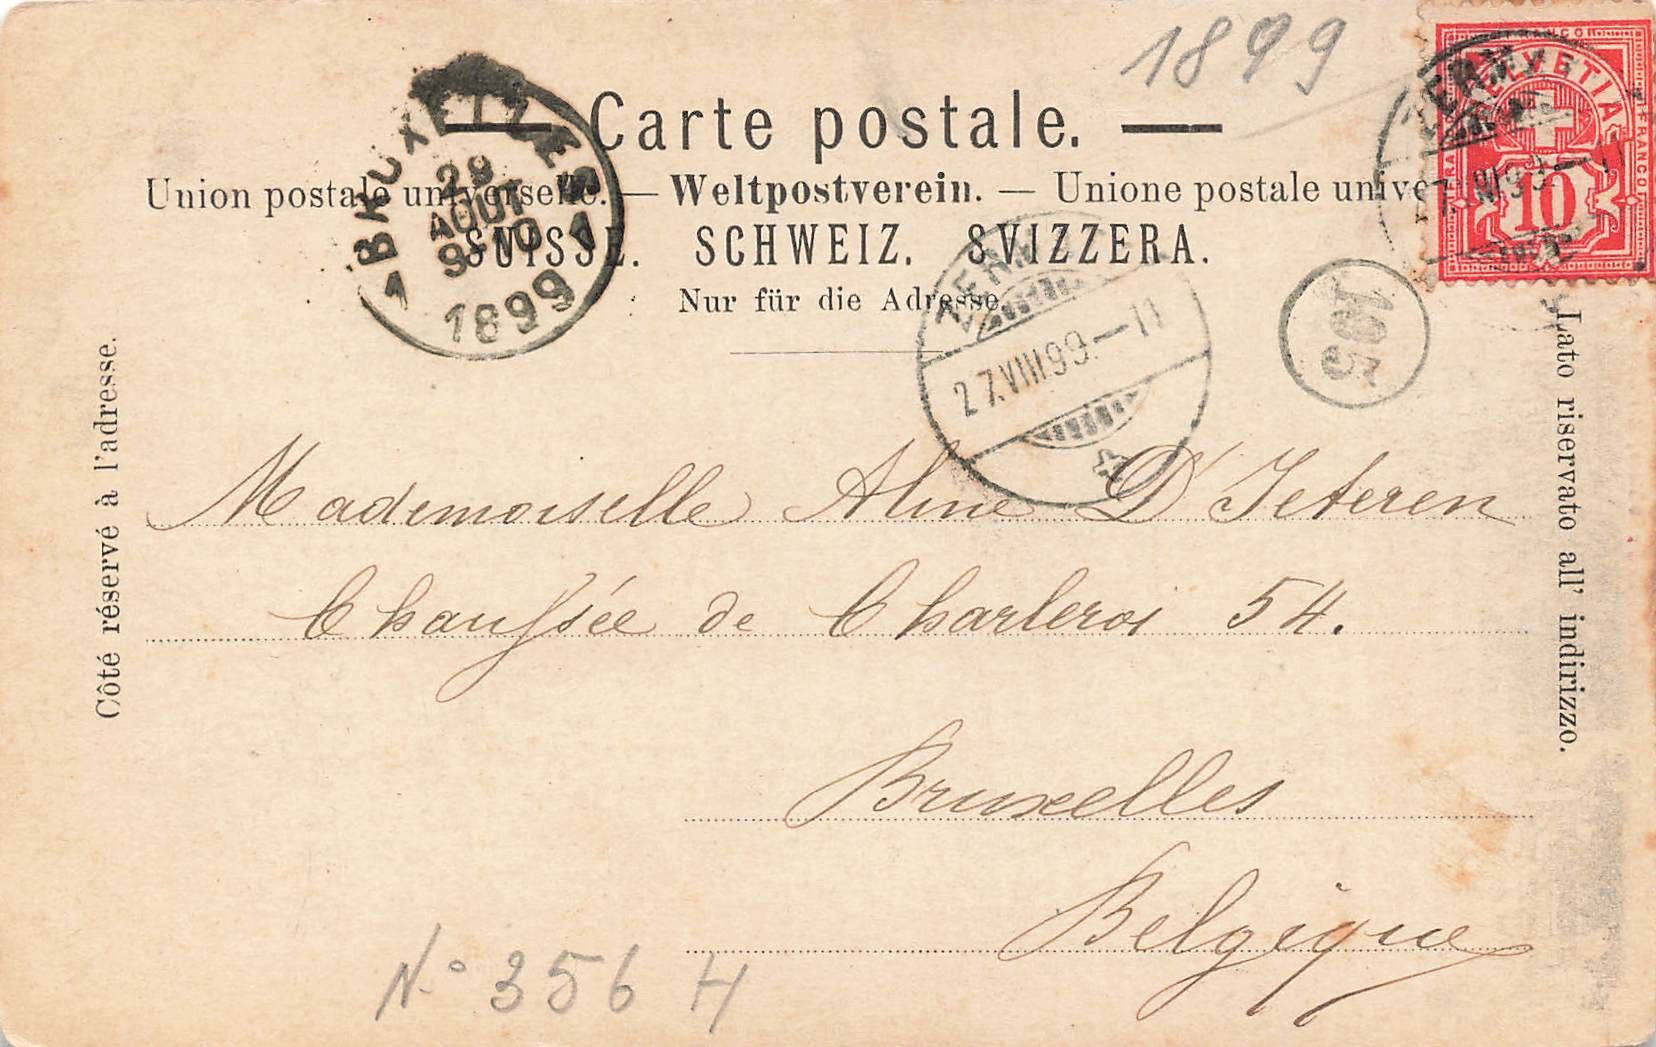 1899
Carte postale.
Union postale universelle. — Weltpostverein. — Unione postale unive
SUISSE. SCHWEIZ. SVIZZERA.
Nur für die Adresse.
BRUXELLES
1 1
29
AOUT
1899
27.VIII.99.—11
HELVETIA
FRANCO
10
195
Côté réservé à l'adresse.
Lato riservato all' indirizzo.
Mademoiselle Aline D'Ieteren
Chaussée de Charleroi 54.
Bruxelles
Belgique
N.° 356 H